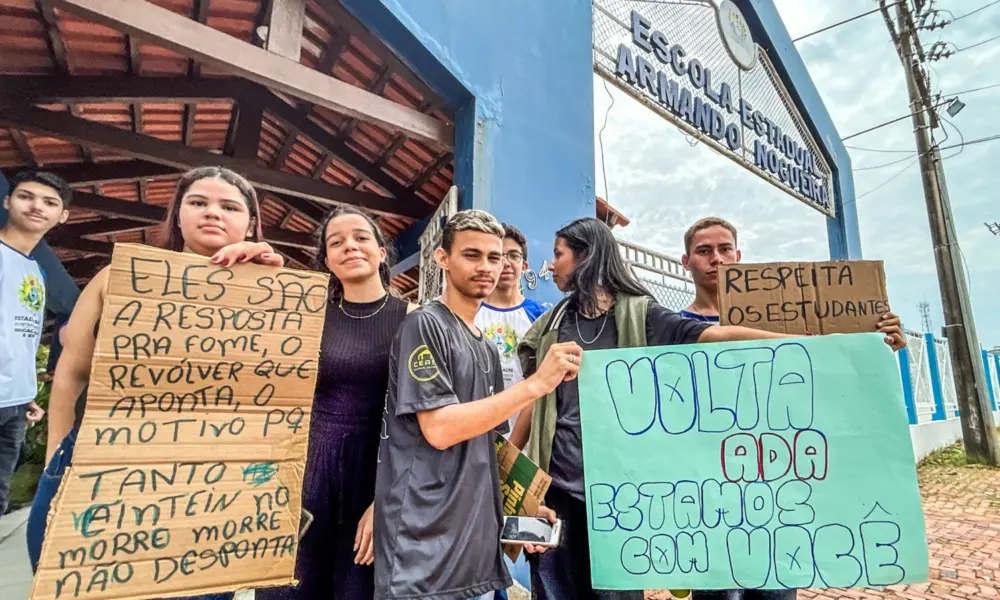 ESCOLA ESTADUAL
ARMANDO NOGUEIRA
ELES SÃO
A RESPOSTA
PRA FOME, O
REVÓLVER QUE
APONTA, O
MOTIVO PQ
TANTO
EINTEIN NO
MORRO MORRE
NÃO DESPONTA
RESPEITA
OS ESTUDANTES
VOLTA
ADA
ESTAMOS
COM VOCÊ